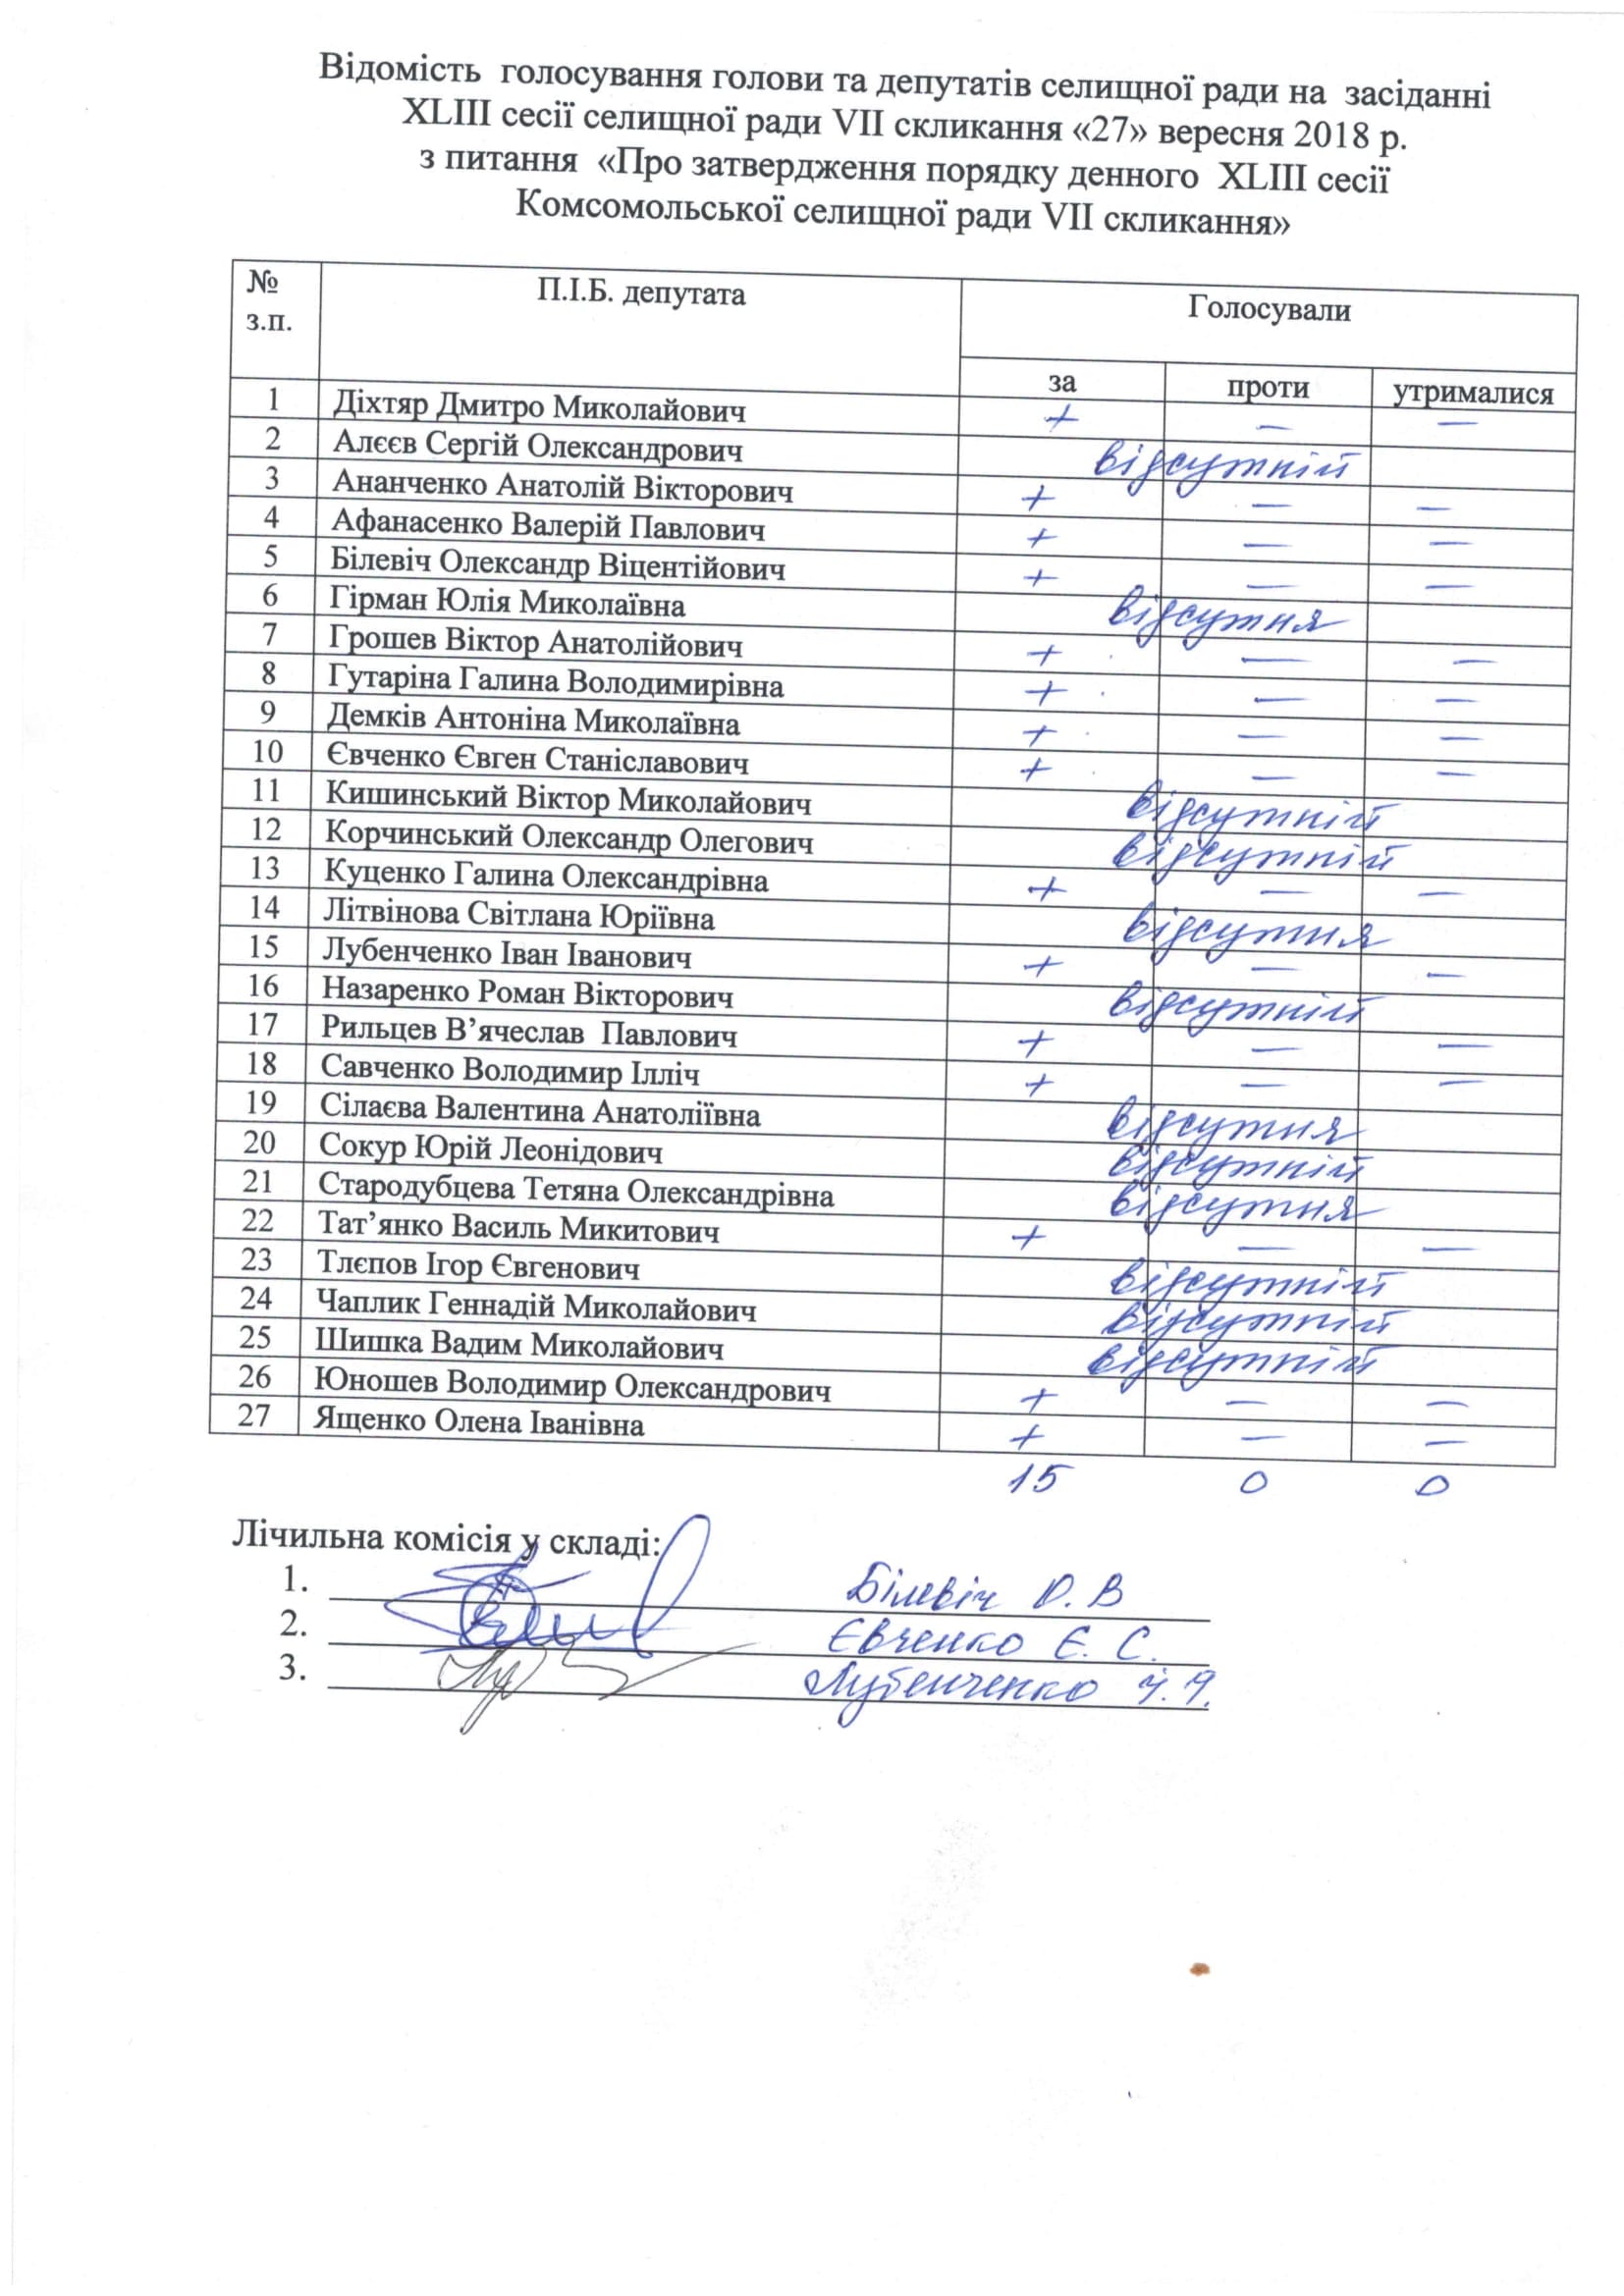 Відомість голосування голови та депутатів селищної ради на засіданні
XLIII сесії селищної ради VII скликання «27» вересня 2018 р.
з питання «Про затвердження порядку денного XLIII сесії
Комсомольської селищної ради VII скликання»
№ з.п. П.І.Б. депутата Голосували
за проти утрималися
1 Діхтяр Дмитро Миколайович + — —
2 Алєєв Сергій Олександрович відсутній
3 Ананченко Анатолій Вікторович + — —
4 Афанасенко Валерій Павлович + — —
5 Білевіч Олександр Віцентійович + — —
6 Гірман Юлія Миколаївна відсутня
7 Грошев Віктор Анатолійович + — —
8 Гутаріна Галина Володимирівна + — —
9 Демків Антоніна Миколаївна + — —
10 Євченко Євген Станіславович + — —
11 Кишинський Віктор Миколайович відсутній
12 Корчинський Олександр Олегович відсутній
13 Куценко Галина Олександрівна + — —
14 Літвінова Світлана Юріївна відсутня
15 Лубенченко Іван Іванович + — —
16 Назаренко Роман Вікторович відсутній
17 Рильцев В’ячеслав Павлович + — —
18 Савченко Володимир Ілліч + — —
19 Сілаєва Валентина Анатоліївна відсутня
20 Сокур Юрій Леонідович відсутній
21 Стародубцева Тетяна Олександрівна відсутня
22 Тат’янко Василь Микитович + — —
23 Тлєпов Ігор Євгенович відсутній
24 Чаплик Геннадій Миколайович відсутній
25 Шишка Вадим Миколайович відсутній
26 Юношев Володимир Олександрович + — —
27 Ященко Олена Іванівна + — —
15 0 0
Лічильна комісія у складі:
1. Білевіч О. В
2. Євченко Є. С.
3. Лубенченко